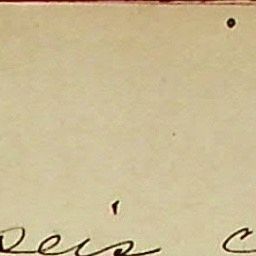 seis c